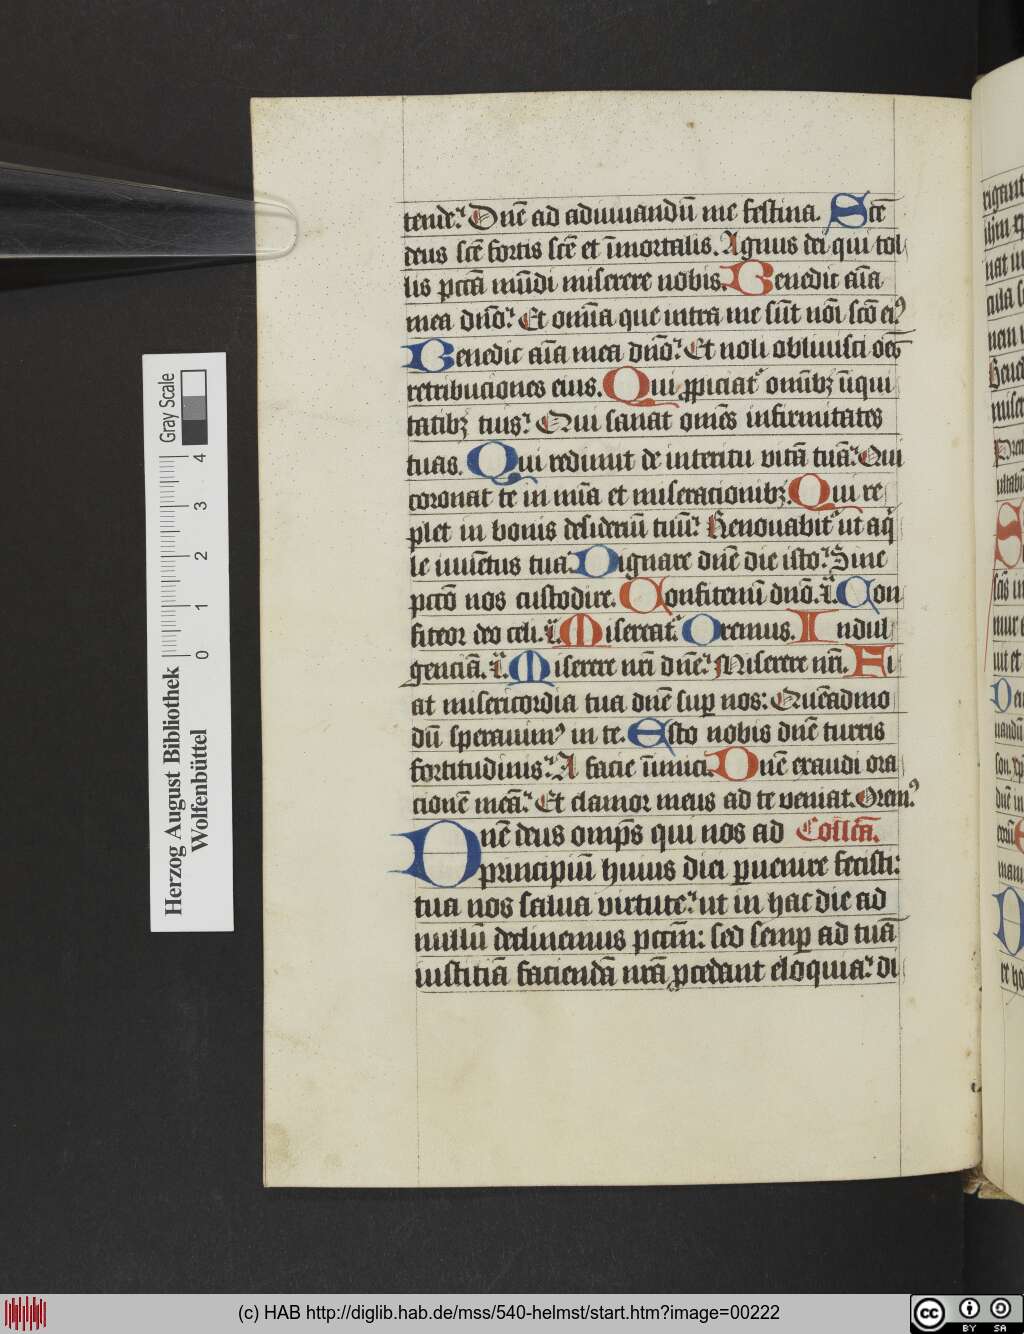 tende. Dnē ad adiuuandū me festina. Scē
deus scē fortis scē et īmortalis. Agnus dei qui tol
lis pctā mūdi miserere nobis. Benedic aīa
mea dnō. Et omīa que intra me sūt nōi scō eiꝰ
Benedic aīa mea dnō. Et noli obliuisci oēs
retribuciones eius. Qui ꝓpiciat᷑ omībꝫ īiqui
tatibꝫ tuis. Qui sanat omēs infirmitates
tuas. Qui redimit de interitu vitā tuā. Qui
coronat te in mīa et miseracionibꝫ. Qui re
plet in bonis desideriū tuū. Renouabit᷑ ut aq̄
le iuuētus tua. Dignare dnē die isto. Sine
pctō nos custodire. Confitemī dnō. Con
fiteor deo celi. Misereat᷑. Oremus. Indul
genciā. Miserere nrī dnē. Miserere nrī. Fi
at misericordia tua dnē suꝑ nos: Quēadmo
dū sperauimꝰ in te. Esto nobis dnē turris
fortitudinis. A facie īimici. Dnē exaudi ora
cionē meā. Et clamor meus ad te veniat. Oremꝰ
Dnē deus omps̄ qui nos ad Collcā.
principiū huius diei ꝑuenire fecisti:
tua nos salua virtute. ut in hac die ad
nullū declinemus pctm̄: sed semꝑ ad tuā
iusticiā faciendā nrā ꝓcedant eloquia. di
Gray Scale
0 1 2 3 4
Herzog August Bibliothek
Wolfenbüttel
(c) HAB http://diglib.hab.de/mss/540-helmst/start.htm?image=00222
cc BY SA